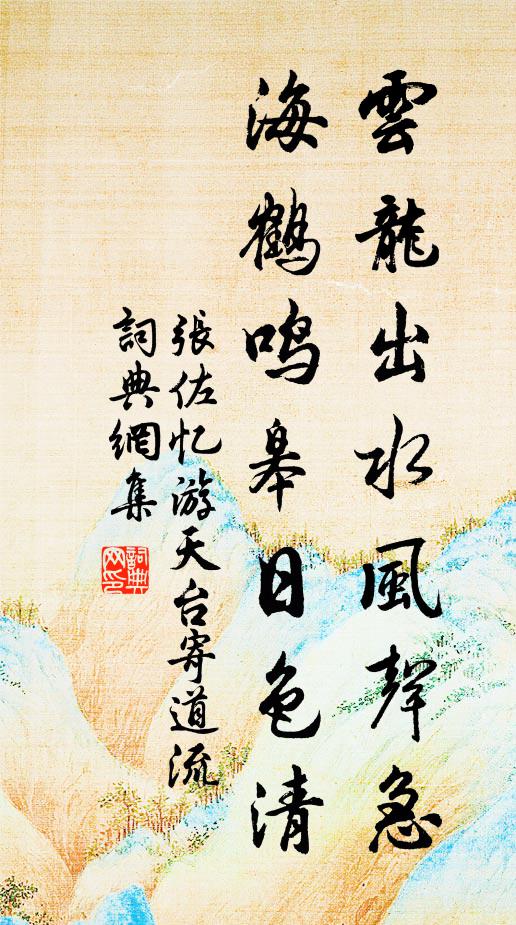 雲龍出水風聲急
海鶴鸣皋日色清
張佐忆游天台寄道流
詞典網集
詞典网印